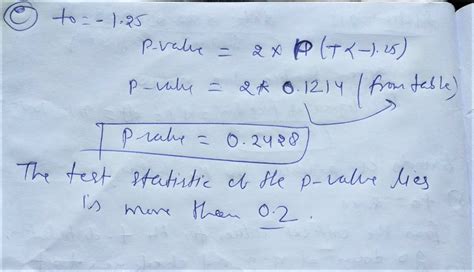 (c) to = -1.25
P-value = 2 x P (T < -1.25)
P-value = 2 * 0.1214 (from table)
P-value = 0.2428
The test statistic of the p-value lies
is more than 0.2.